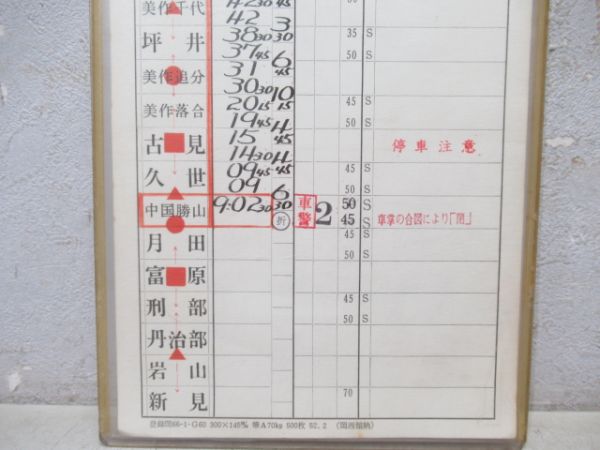 美作千代 42 30 45 50
42 3
坪井 38 30 30 35 S
37 45 6
美作追分 31 45
30 30 10
美作落合 20 15 15 45 S
19 45 4 50 S
古見 15 45 停車注意
14 30 4
久世 09 45 45 45 S
09 6 50 S
中国勝山 9:02 30 30 折 車警 2 50 S
45 S 車掌の合図により「閉」
月田 45 S
50 S
富原
刑部 45 S
50 S
丹治部
岩山
新見 70
(関西信納)